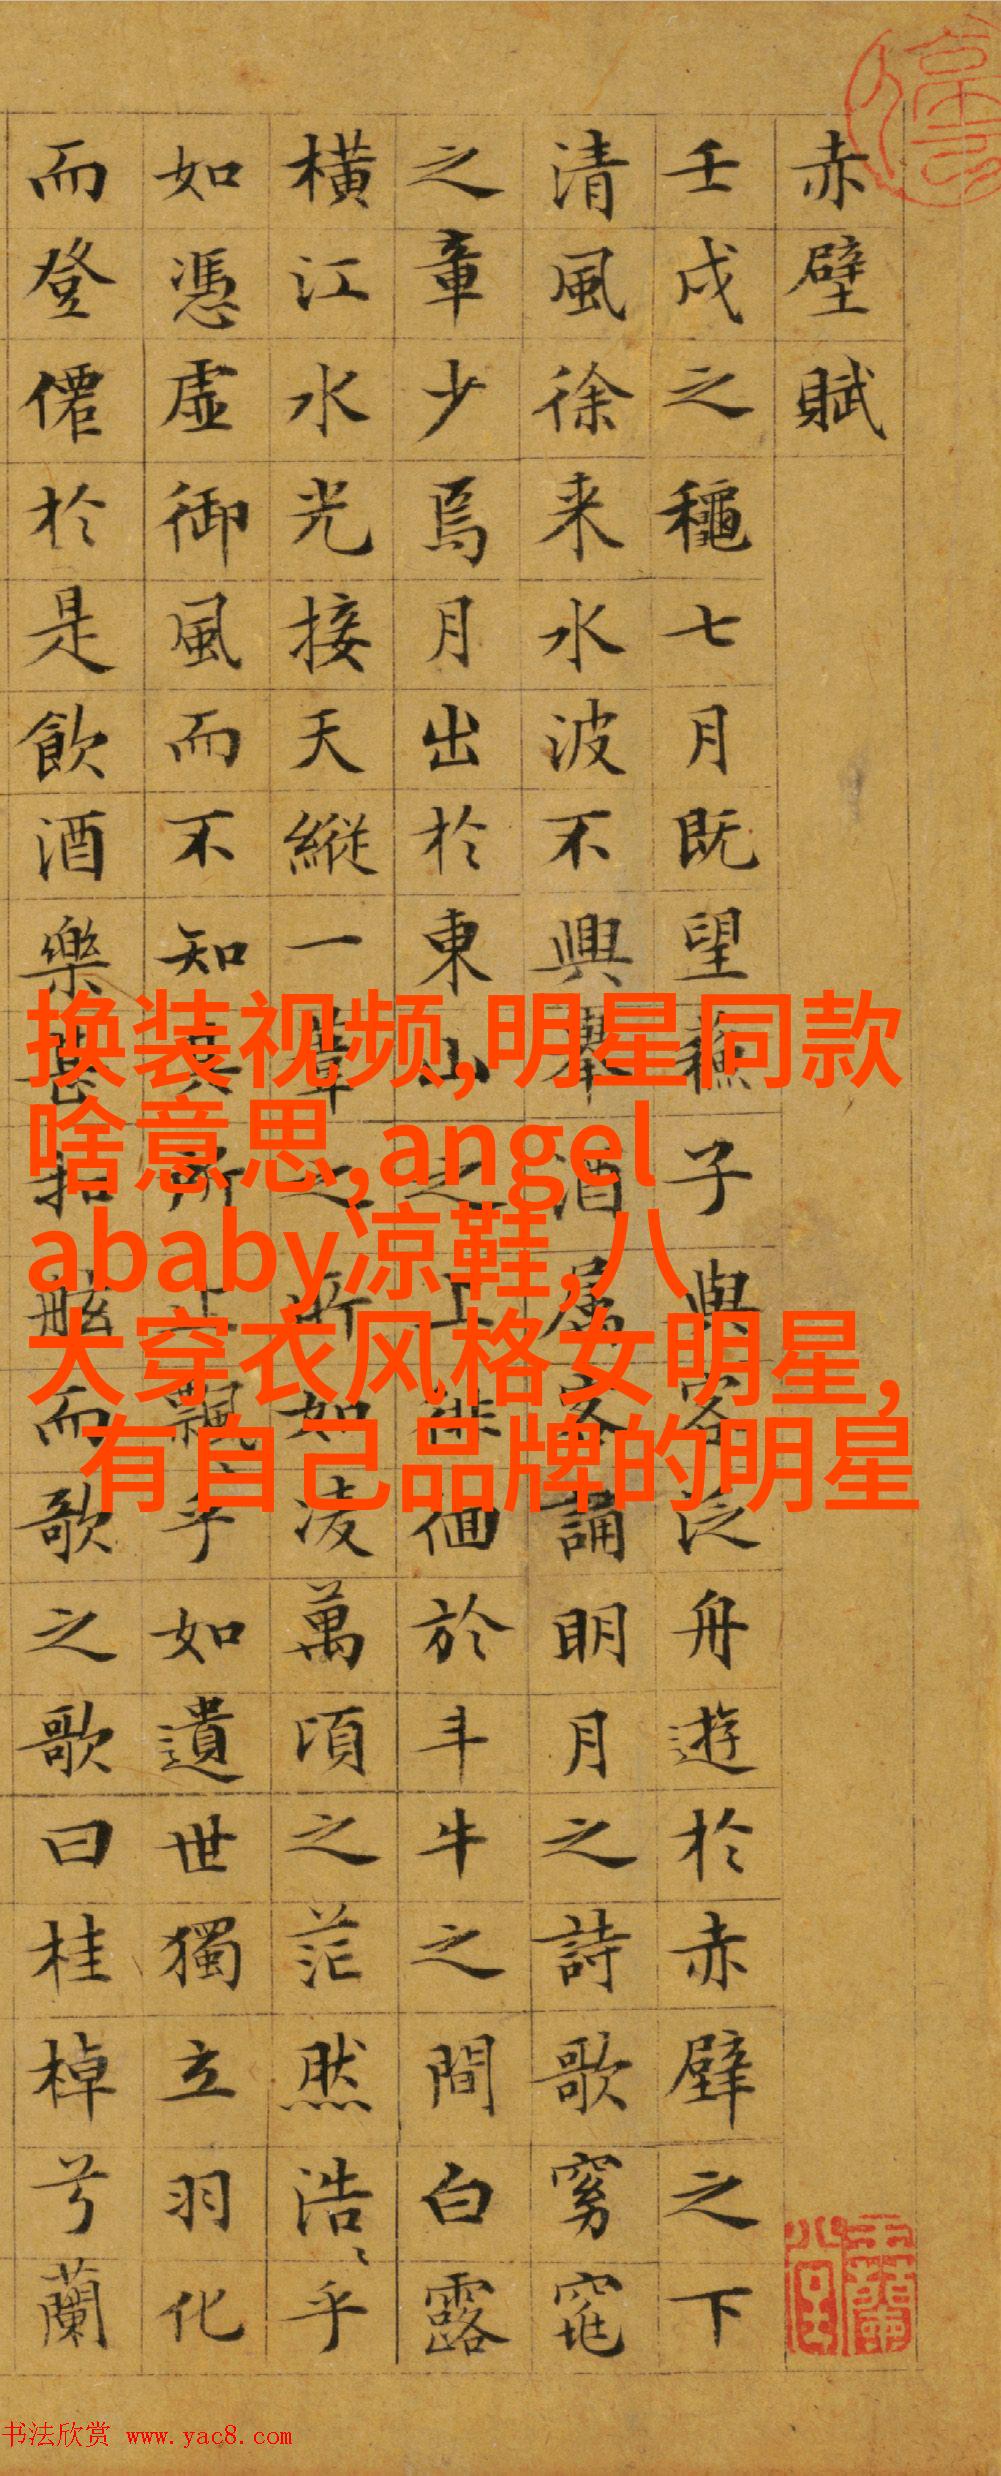 赤壁賦
壬戌之穐七月既望蘇子與客泛舟遊於赤壁之下
清風徐来水波不興舉酒属客誦明月之詩歌窈窕
之章少焉月出於東山之上徘徊於斗牛之間白露
橫江水光接天縱一葦之所如凌萬頃之茫然浩、乎
如憑虛御風而不知其所止飄、乎如遺世獨立羽化
而登僊於是飲酒樂甚扣舷而歌之歌曰桂棹兮蘭
换装视频,明星同款
啥意思,angel
ababy凉鞋,八
大穿衣风格女明星,
有自己品牌的明星
书法欣赏 www.yac8.com